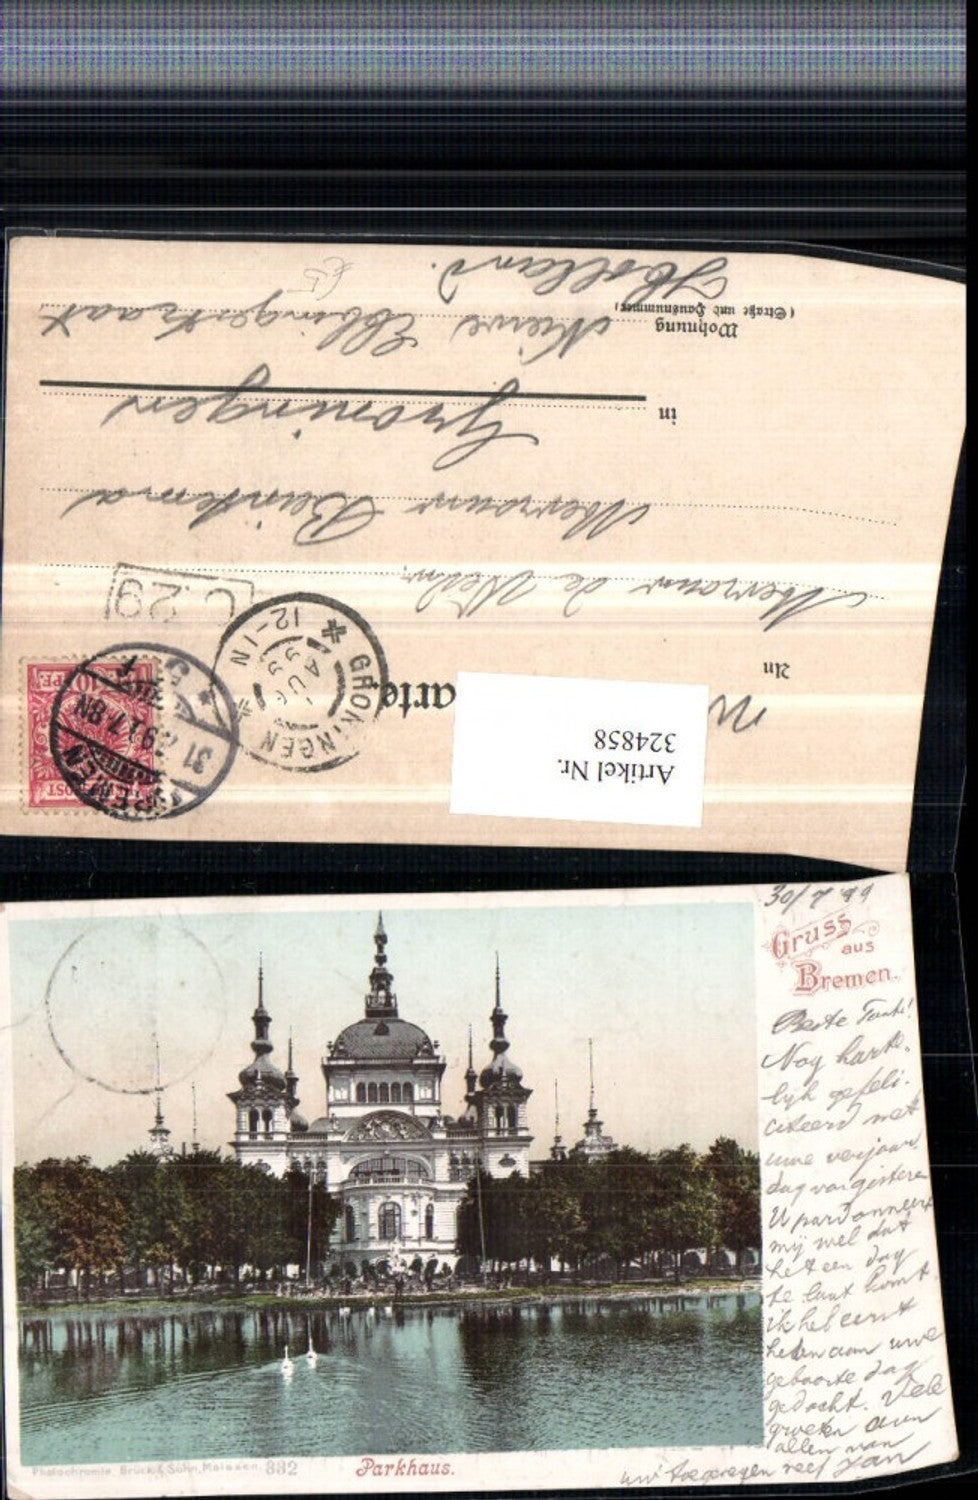 Artikel Nr.
324858
arte.
An
Mevrouw de Weduwe
Mevrouw Beintema
in
Groningen
Wohnung
(Straße und Hausnummer)
Nieuwe Ebbingestraat
Holland.
C.29
GRONINGEN
12-1N
AUG
99
BREMEN
31 7 99 7-8N
10 PF
30/7 99
Gruss
aus
Bremen.
Beste Tante!
Nog harte-
lijk gefeli-
citeerd met
uwe verjaar
dag van gisteren
U pardonneert
mij wel dat
het een dag
te laat komt
ik heb eerst
heden aan uwe
geboorte dag
gedacht. Vele
groeten aan
allen van
uw toegenegen neef Jan
Photochromie Brück & Sohn, Meissen. 332
Parkhaus.